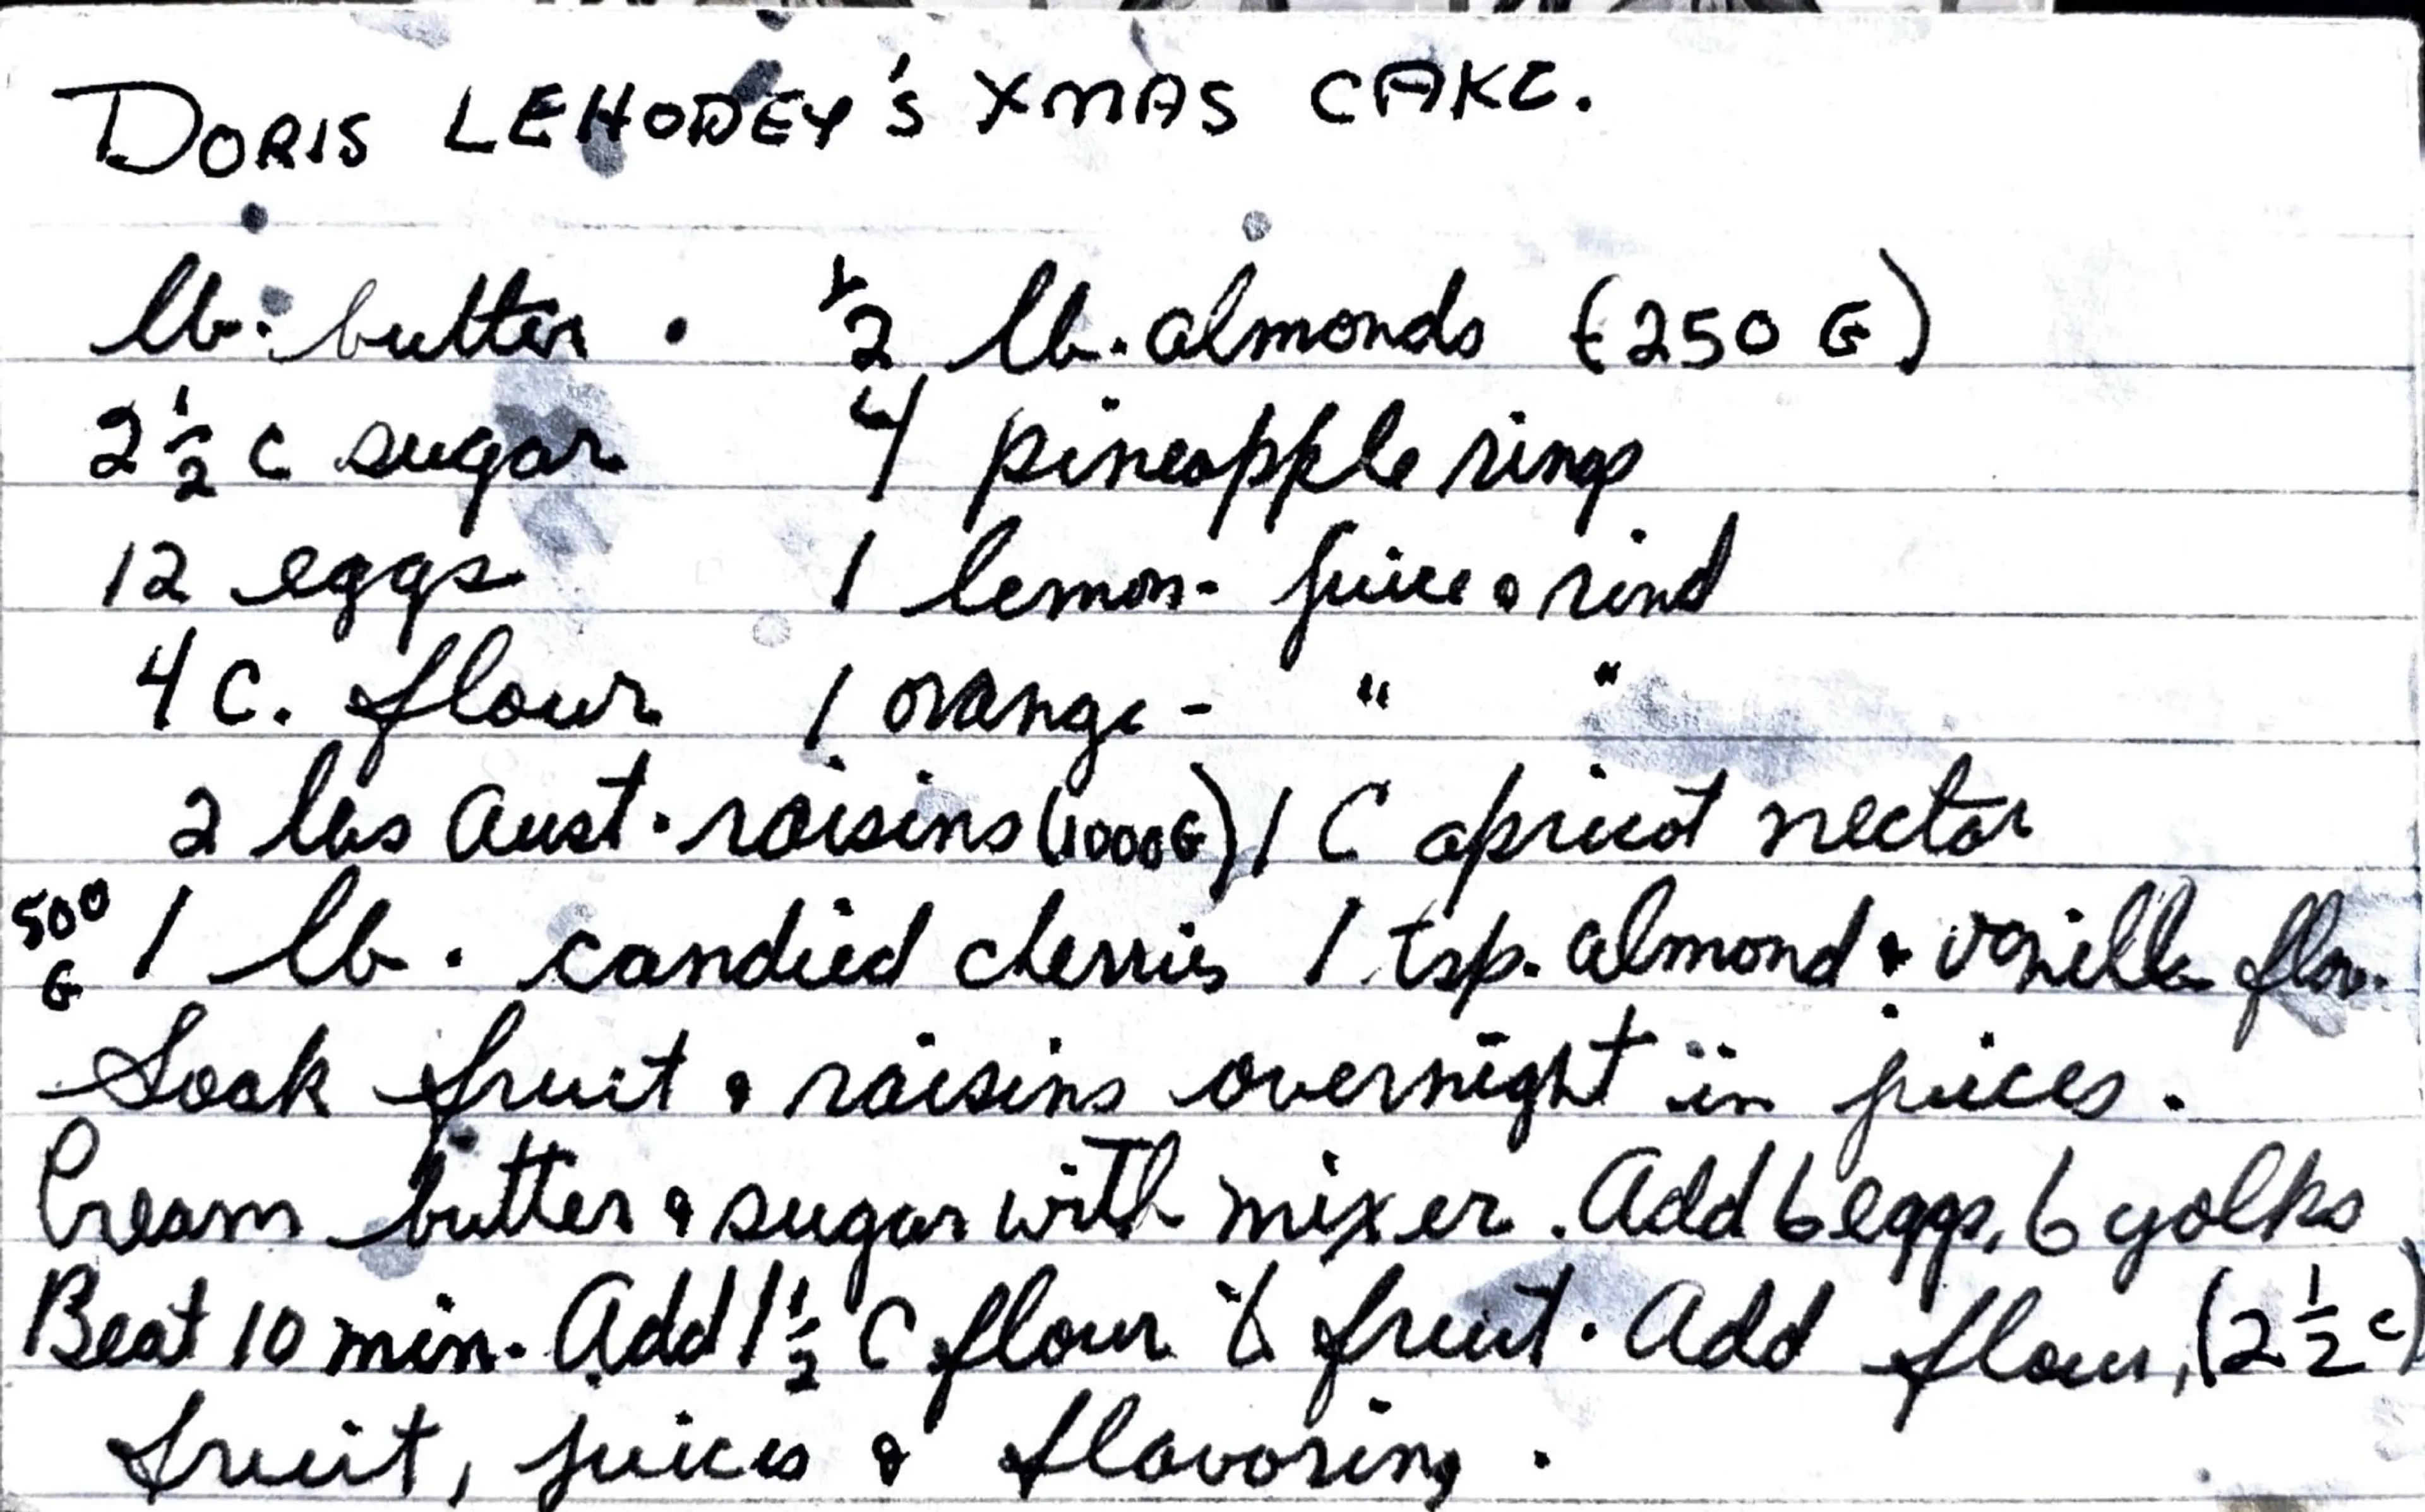 DORIS LEHODEY'S XMAS CAKE.
lb. butter. ½ lb. almonds (250 G)
2½ c sugar 4 pineapple rings
12 eggs 1 lemon - juice & rind
4 C. flour 1 orange - " "
2 lbs Aust. raisins (1000G) 1 C apricot nectar
500 G 1 lb. candied cherries 1 tsp. almond & vanilla flav.
Soak fruit & raisins overnight in juices.
Cream butter & sugar with mixer. Add 6 eggs, 6 yolks
Beat 10 min. Add 1½ C flour to fruit. Add flour, (2½ c)
fruit, juices & flavoring.